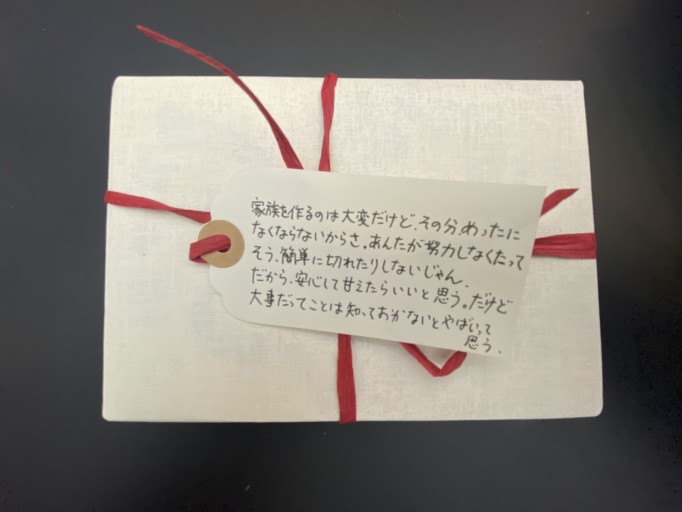 家族を作るのは大変だけど、その分、めったに
なくならないからさ。あんたが努力しなくたって
そう、簡単に切れたりしないじゃん。
だから、安心して甘えたらいいと思う。だけど
大事だってことは知っておかないとやばいって
思う、